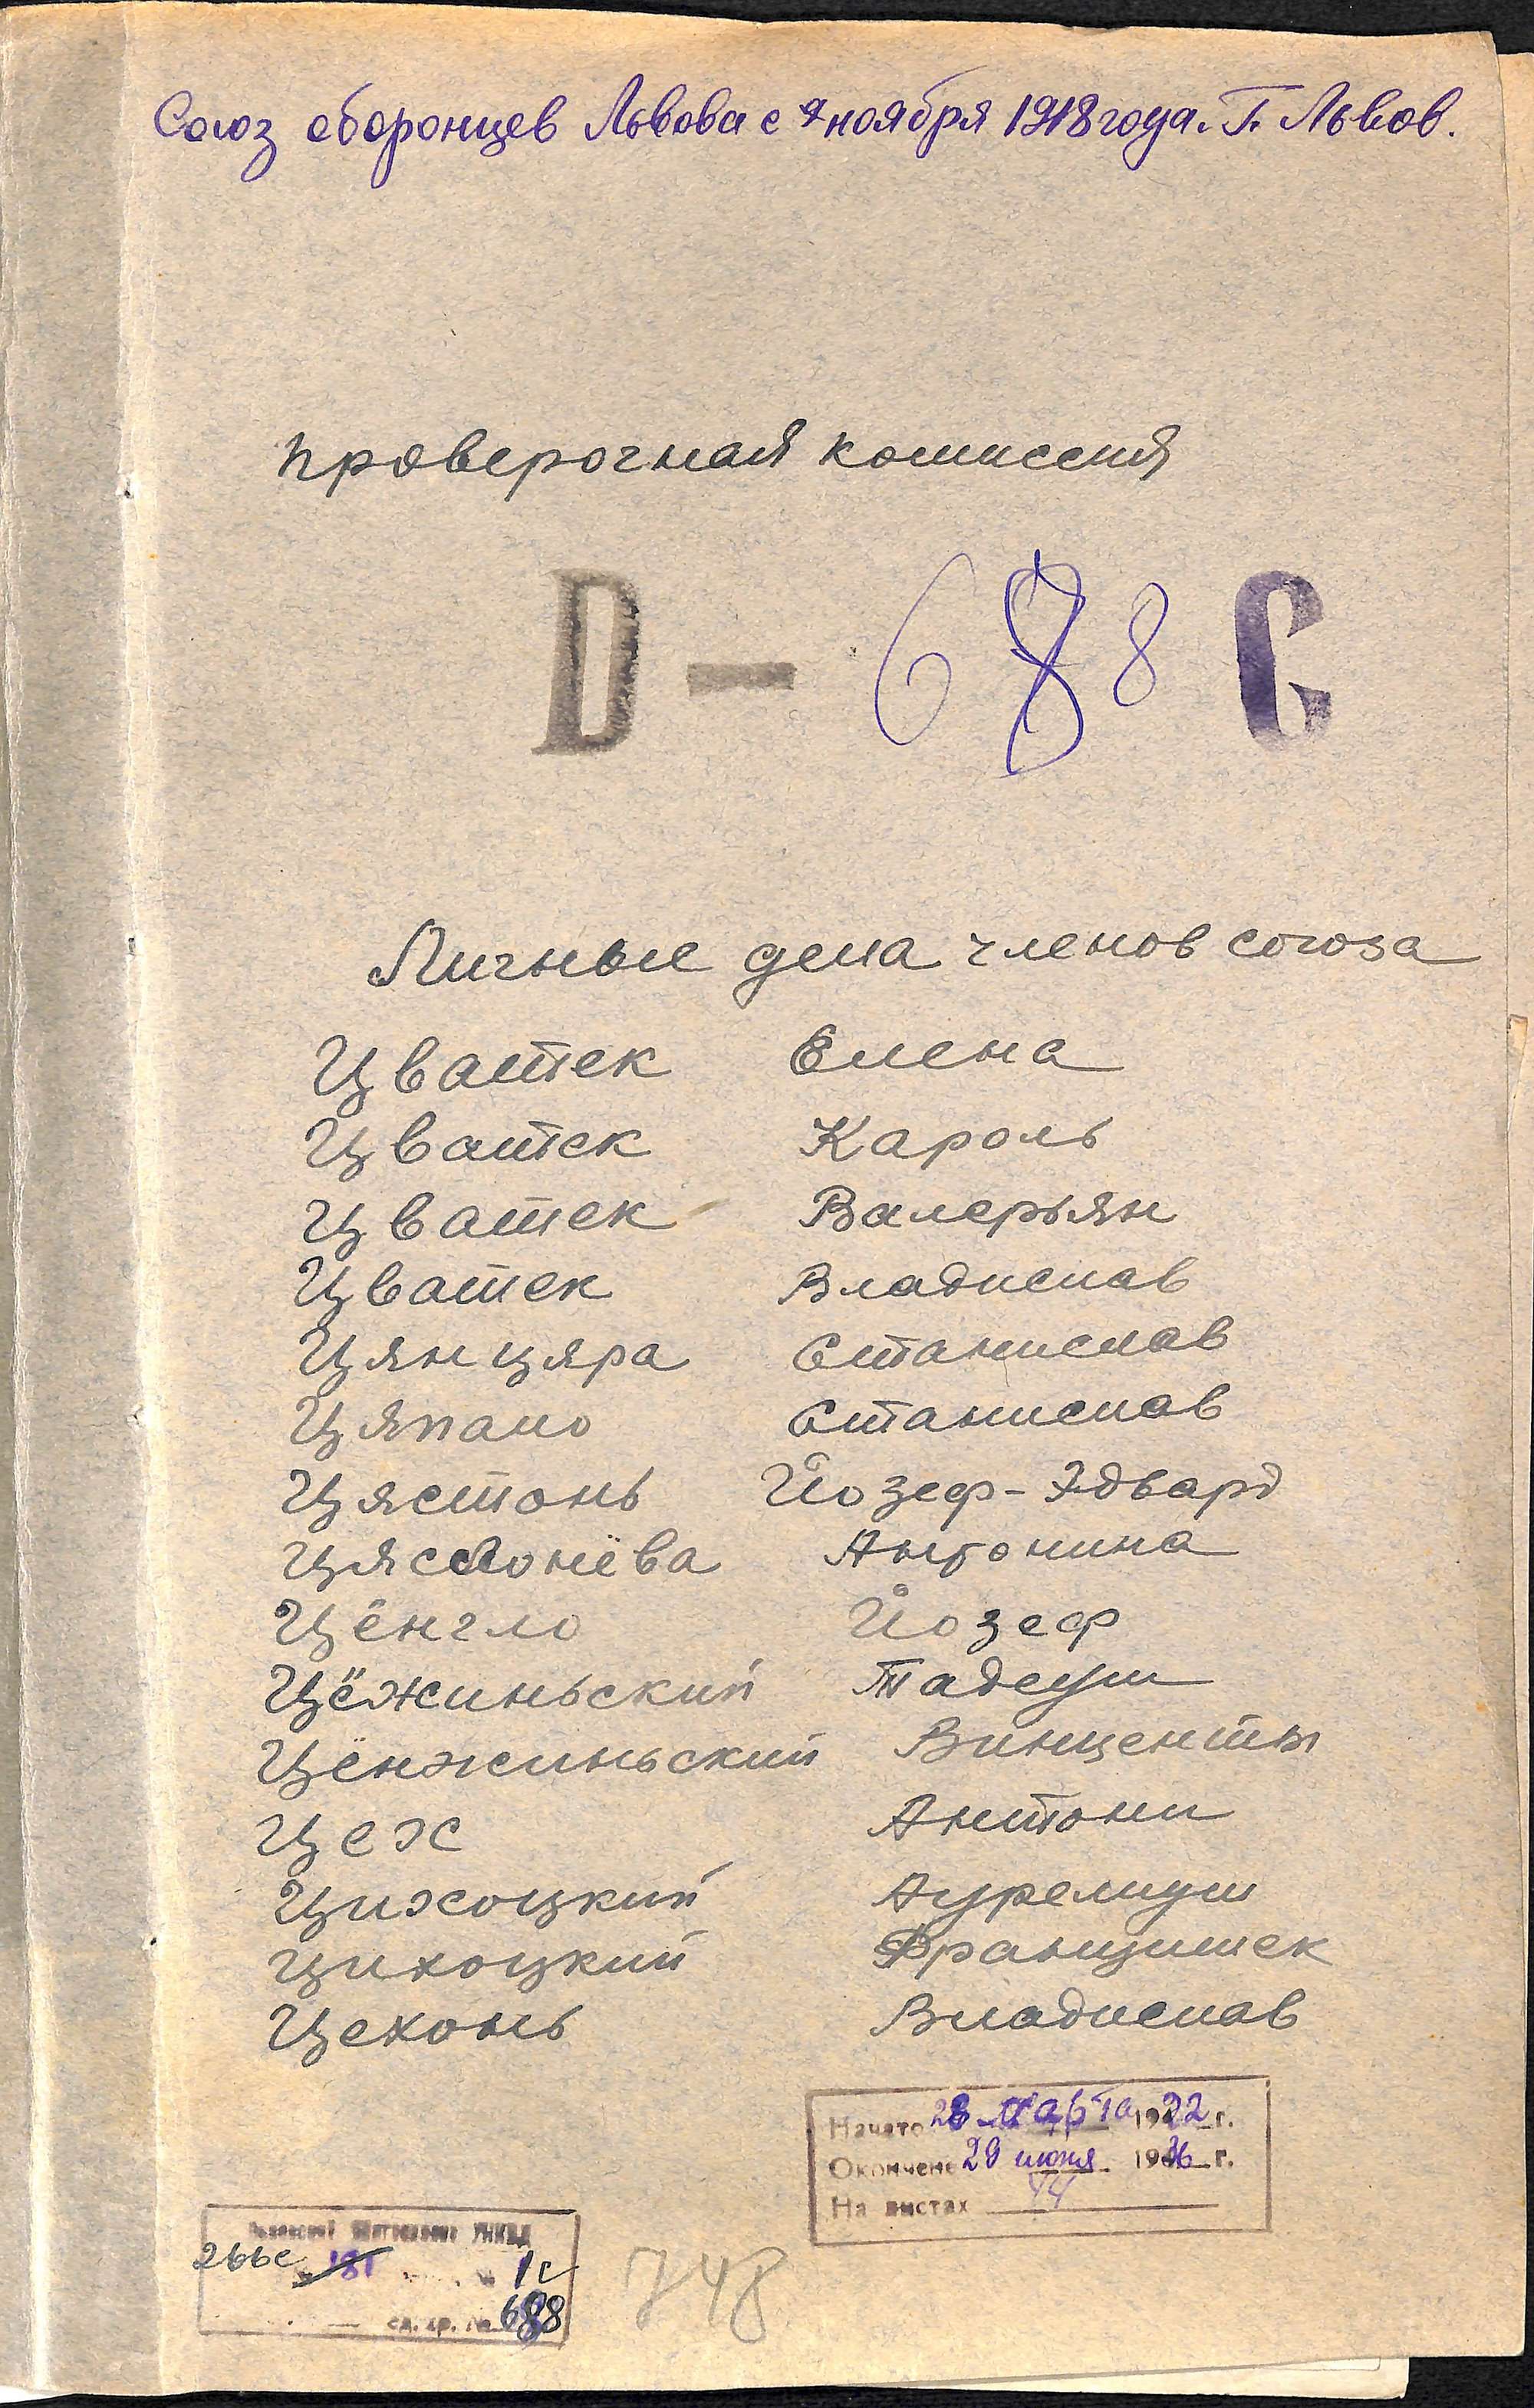 Союз оборонцев Львова с ноября 1918 года. Г. Львов.
Проверочная комиссия
D — 688 С
Личные дела членов союза
Цватек Елена
Цватек Кароль
Цватек Валерьян
Цватек Владислав
Цянцяра Станислав
Цяпало Станислав
Цястонь Йозеф-Эдвард
Цястонёва Антонина
Цёнгло Йозеф
Цёжиньский Тадеуш
Цёнжиньский Винценты
Цех Антони
Цихоцкий Аурелиуш
Цихоцкий Францишек
Цехонь Владислав
Начато 28 марта 1922 г.
Окончено 29 июня 1936 г.
На листах 44
УНКВД
266с 181 1с
ед. хр. № 688
748